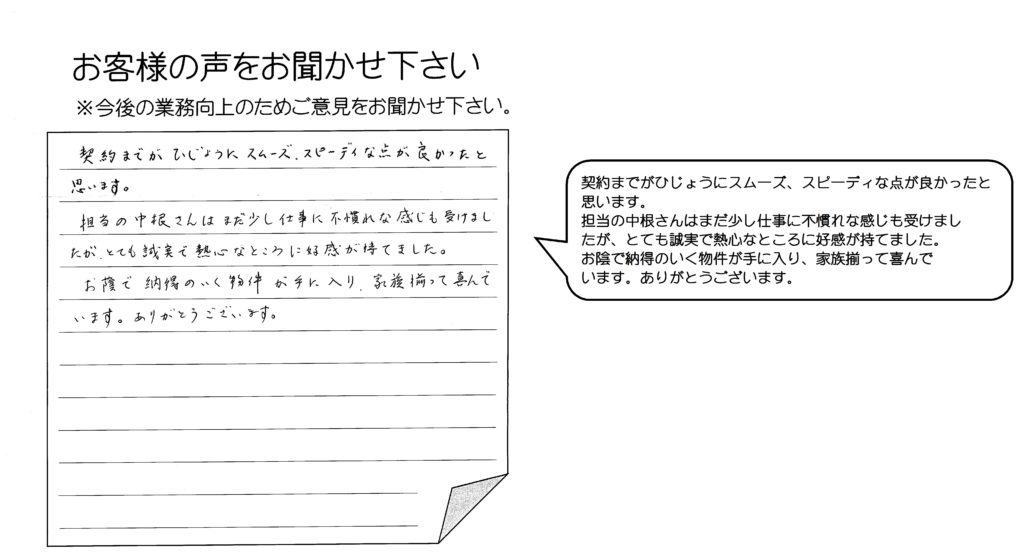 お客様の声をお聞かせ下さい
※今後の業務向上のためご意見をお聞かせ下さい。
契約までが ひじょうに スムーズ、スピーディな点が良かったと
思います。
担当の中根さんはまだ少し仕事に不慣れな感じも受けまし
たが、とても誠実で熱心なところに好感が持てました。
お蔭で 納得のいく物件が手に入り、家族揃って喜んで
います。ありがとうございます。
契約までがひじょうにスムーズ、スピーディな点が良かったと
思います。
担当の中根さんはまだ少し仕事に不慣れな感じも受けまし
たが、とても誠実で熱心なところに好感が持てました。
お陰で納得のいく物件が手に入り、家族揃って喜んで
います。ありがとうございます。